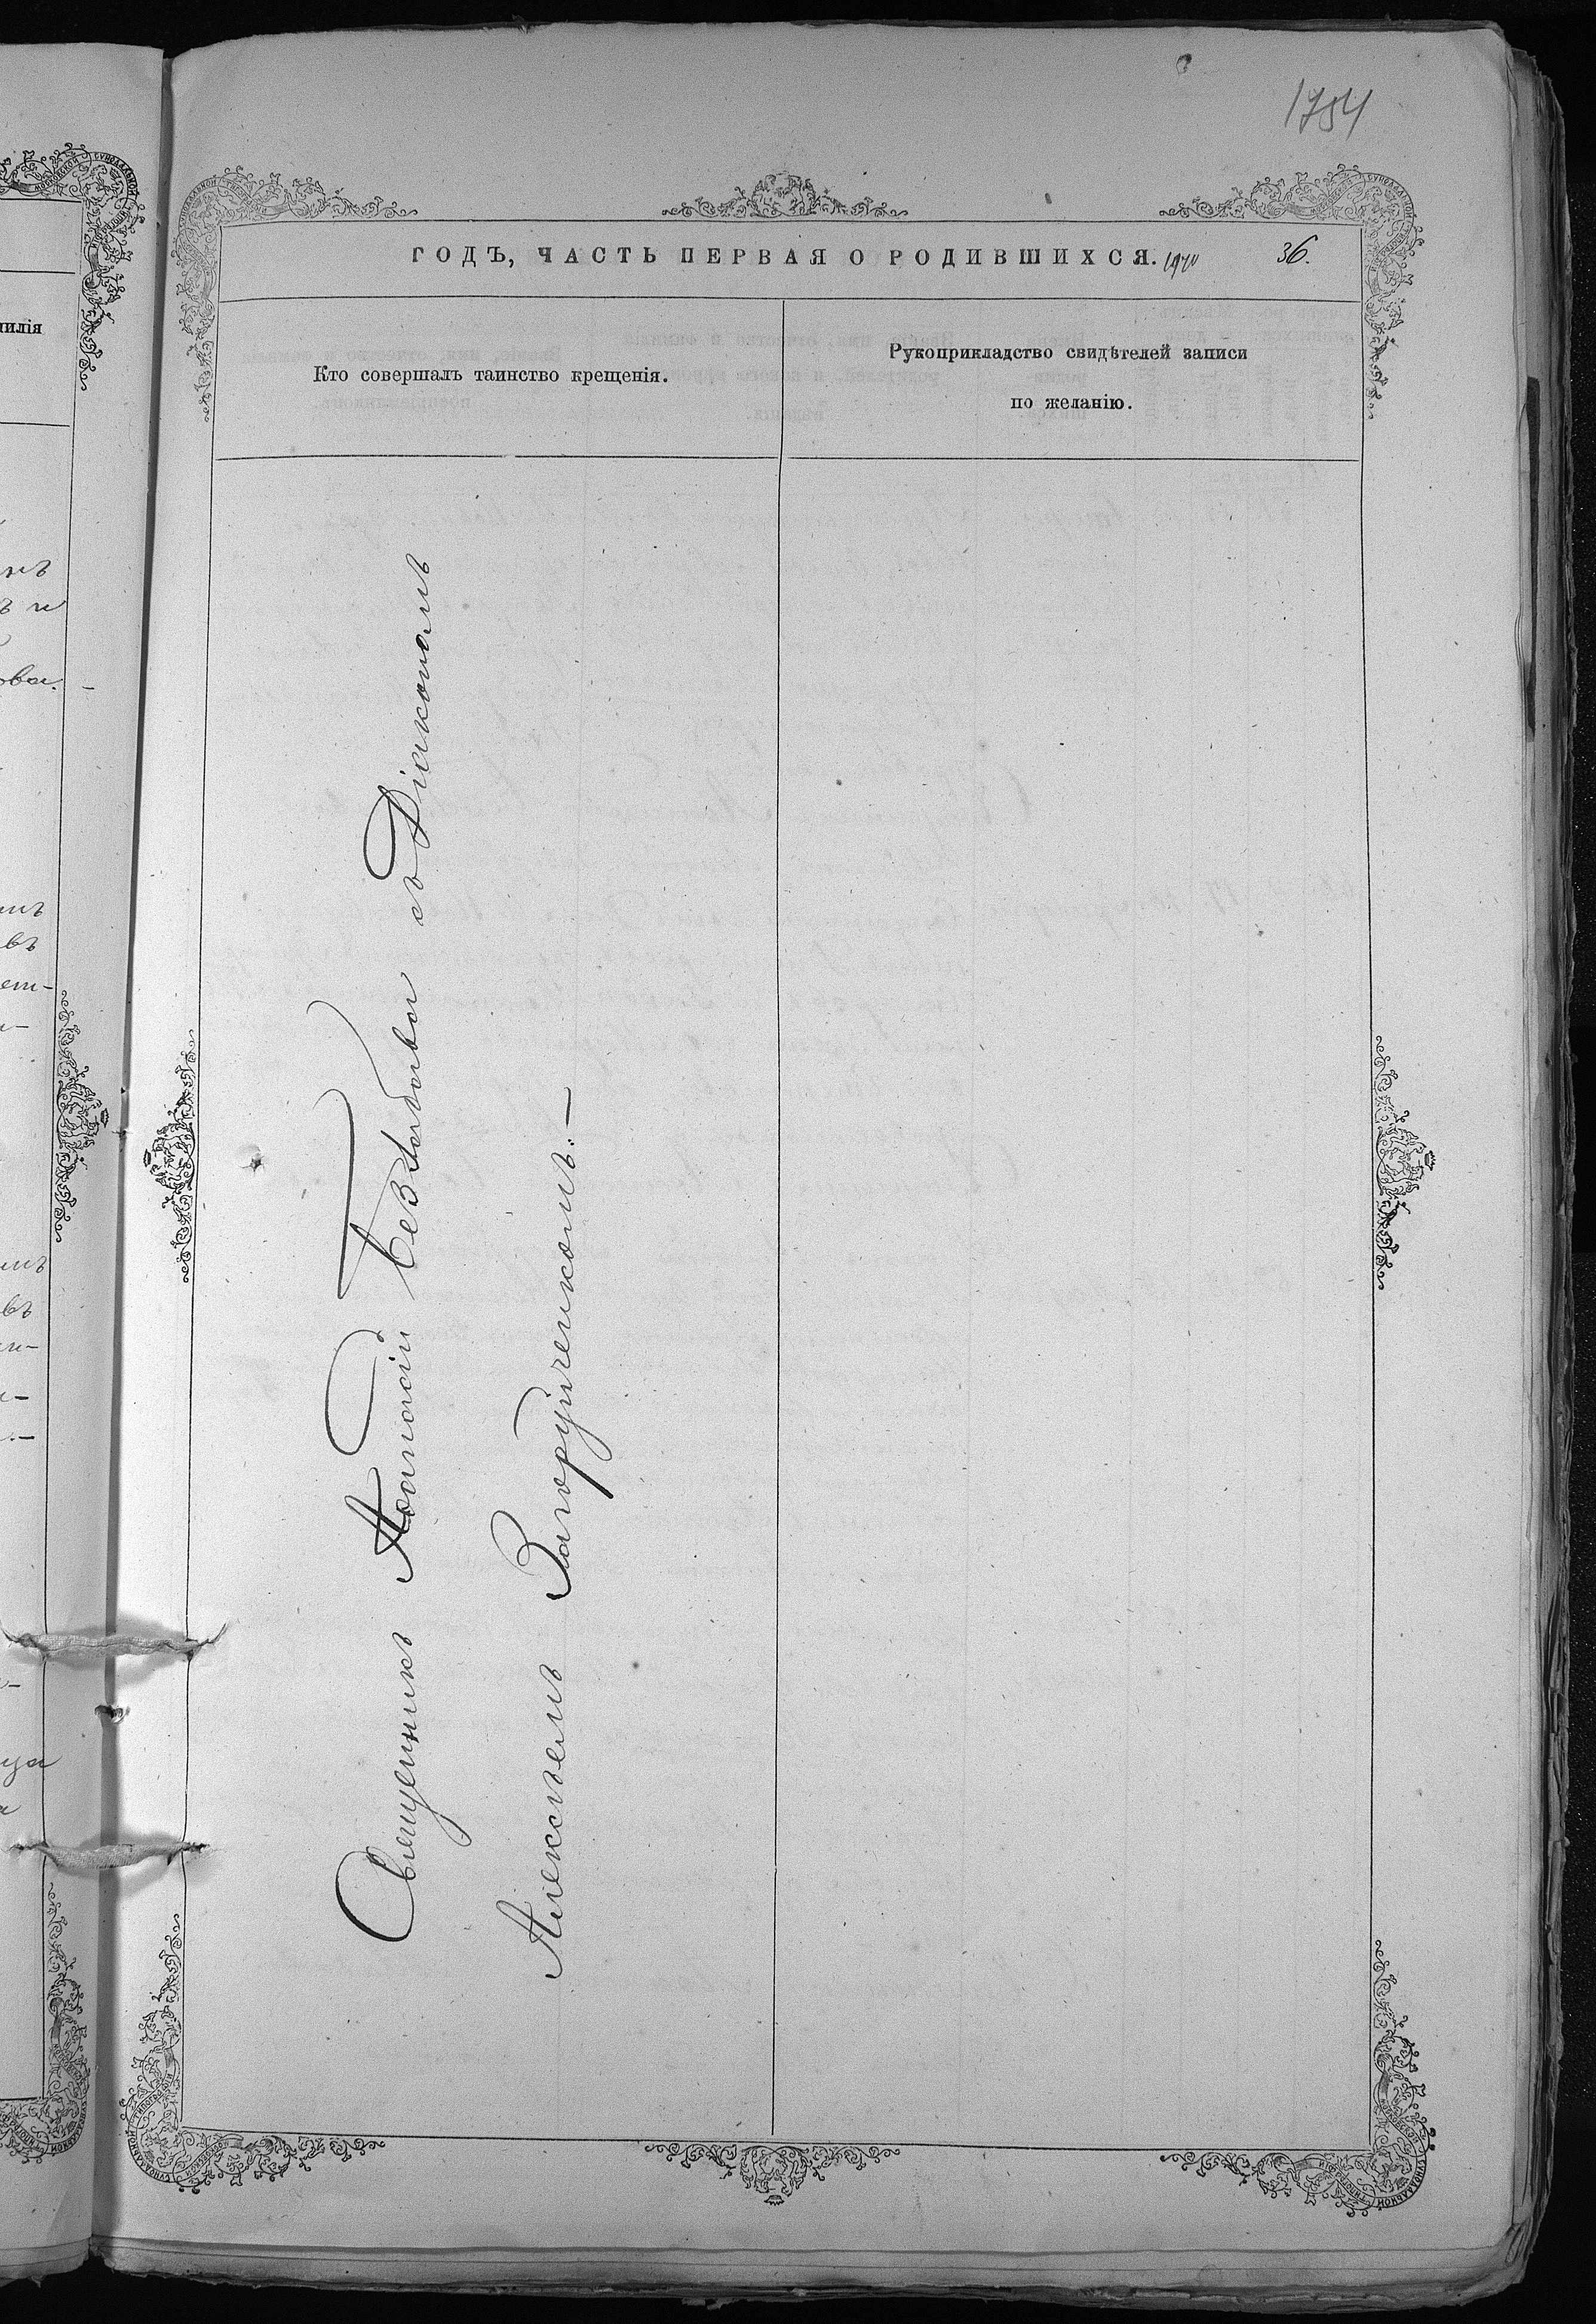 1754
ГОДЪ, ЧАСТЬ ПЕРВАЯ О РОДИВШИХСЯ.
36.
Кто совершалъ таинство крещенія.
Рукоприкладство свидѣтелей записи
по желанію.
Священникъ Аѳанасій съ Діакономъ
Алексѣемъ Загоруйченкомъ.—
милія
нъ
ъ и
ова.-
въ
ет-
въ